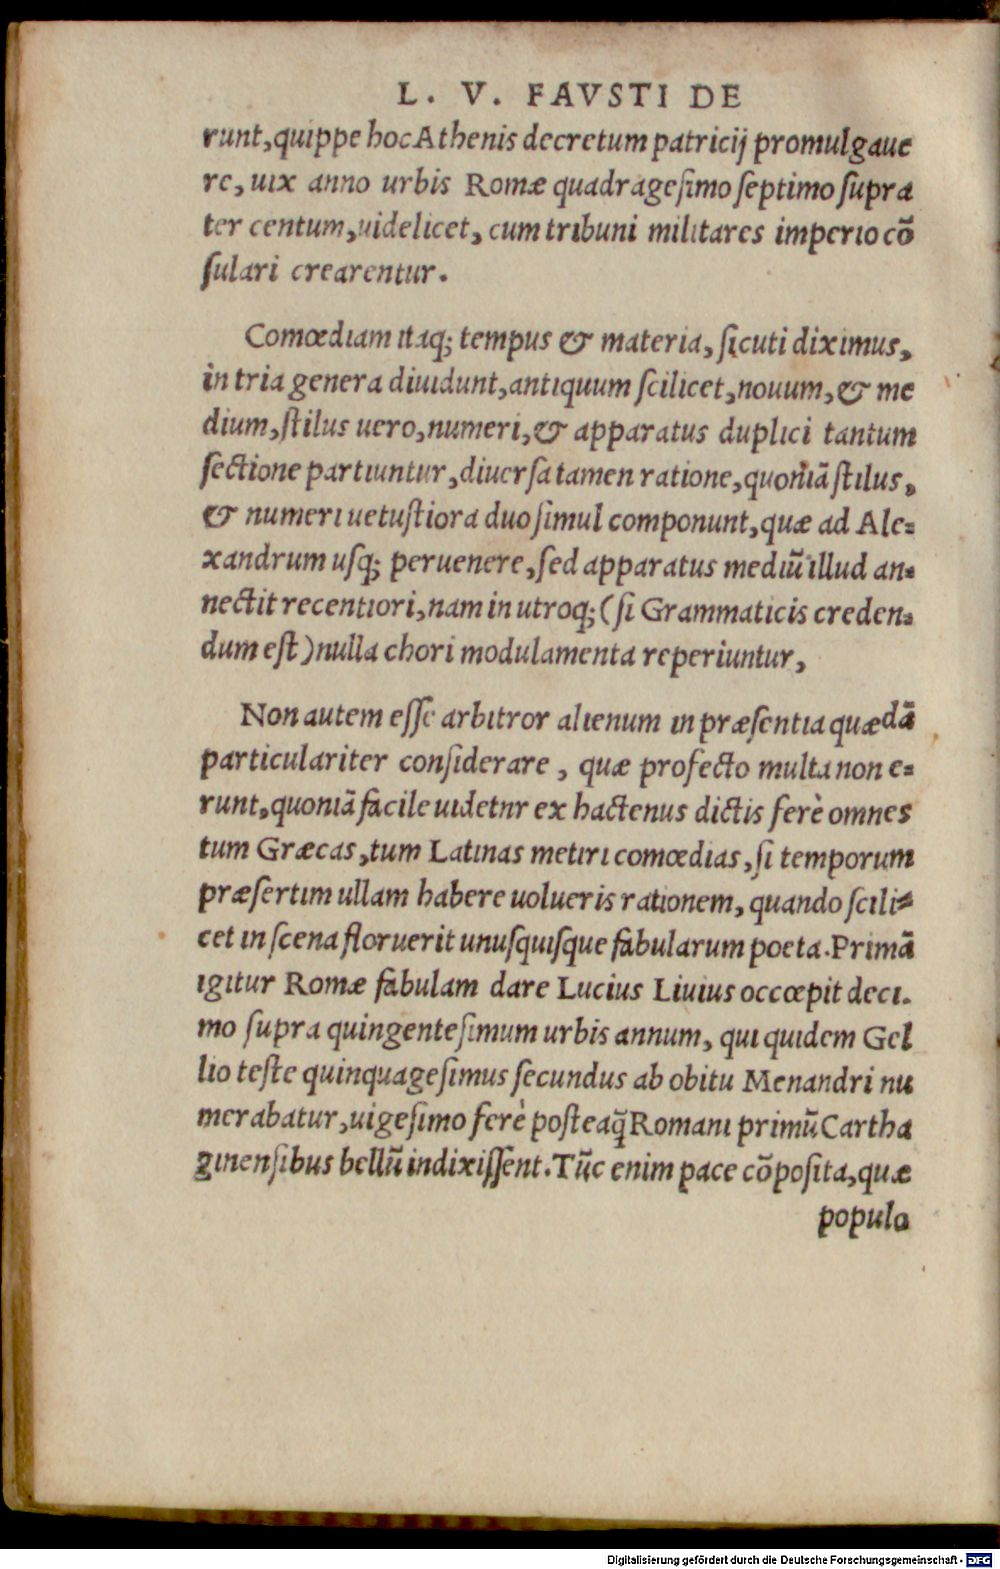 L. V. FAVSTI DE
runt,quippe hoc Athenis decretum patricij promulgaue
re, uix anno urbis Romæ quadragesimo septimo supra
ter centum,uidelicet, cum tribuni militares imperio cõ
sulari crearentur.
Comœdiam itaq; tempus & materia, sicuti diximus,
in tria genera diuidunt,antiquum scilicet,nouum,& me
dium,stilus uero,numeri,& apparatus duplici tantum
sectione partiuntur,diuersa tamen ratione,quoniã stilus,
& numeri uetustiora duo simul componunt,quæ ad Ale=
xandrum usq; peruenere,sed apparatus mediũ illud an=
nectit recentiori,nam in utroq;(si Grammaticis creden=
dum est)nulla chori modulamenta reperiuntur,
Non autem esse arbitror alienum in præsentia quædã
particulariter considerare, quæ profecto multa non e=
runt,quoniã facile uidetnr ex hactenus dictis ferè omnes
tum Græcas,tum Latinas metiri comœdias,si temporum
præsertim ullam habere uolueris rationem, quando scili=
cet in scena floruerit unusquisque fabularum poeta.Primã
igitur Romæ fabulam dare Lucius Liuius occœpit deci.
mo supra quingentesimum urbis annum, qui quidem Gel
lio teste quinquagesimus secundus ab obitu Menandri nu
merabatur,uigesimo ferè posteaq̃ Romani primũ Cartha
ginensibus bellũ indixissent.Tũc enim pace cõposita,quæ
populo
Digitalisierung gefördert durch die Deutsche Forschungsgemeinschaft - DFG